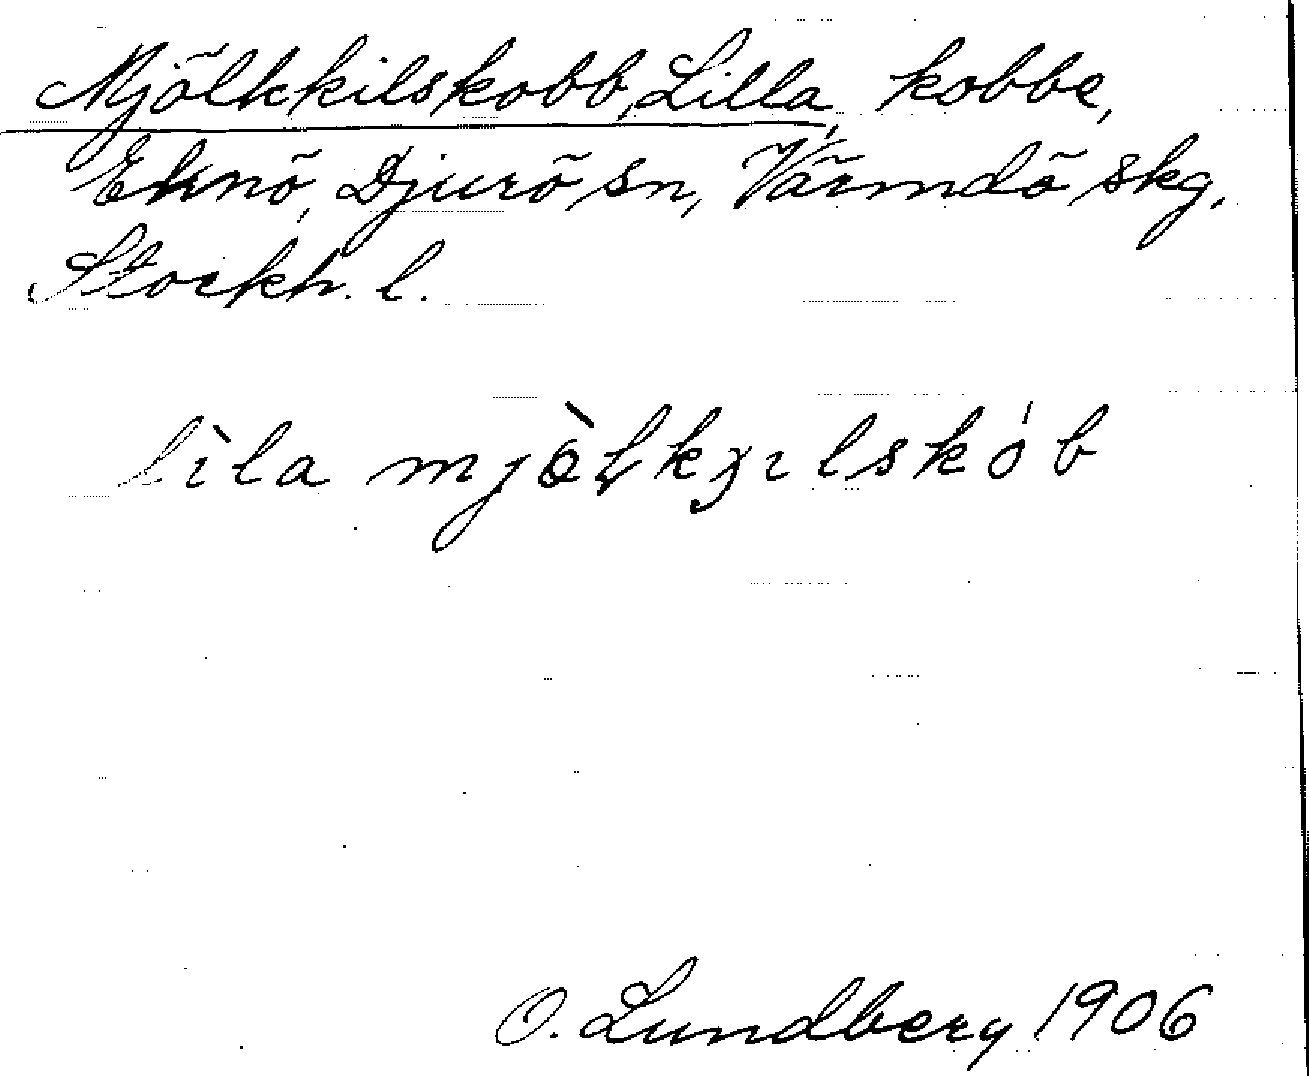 Mjölkkilskobb, Lilla, kobbe,
Eknö, Djurö sn, Värmdö skg,
Stockh. l.
lìla mjòɫkȷılskób
O. Lundberg 1906